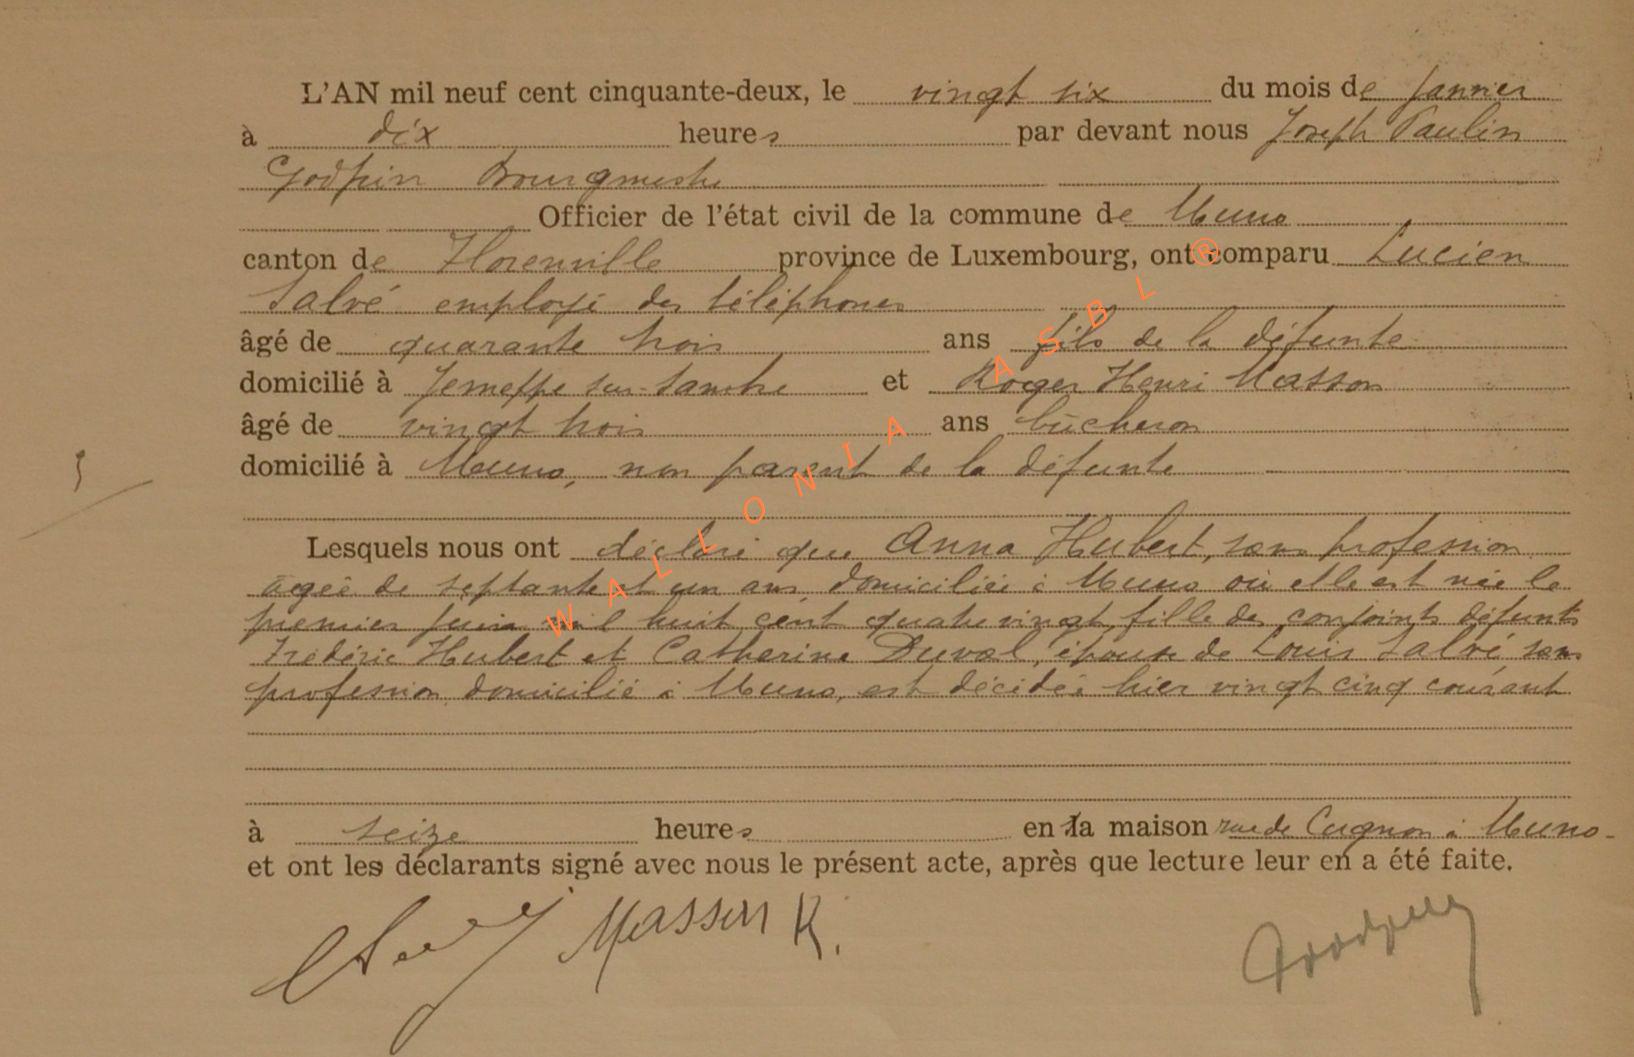 L'AN mil neuf cent cinquante-deux, le vingt six du mois de janvier
à dix heures par devant nous Joseph Paulin
Godfrin Bourgmestre
Officier de l'état civil de la commune de Muno
canton de Florenville province de Luxembourg, ont comparu Lucien
Salvé employé des téléphones
âgé de quarante trois ans fils de la défunte
domicilié à Jemeppe sur Sambre et Roger Henri Masson
âgé de vingt trois ans bûcheron
domicilié à Muno, non parent de la défunte
Lesquels nous ont déclaré que Anna Hubert, sans profession
agée de septante et un ans domiciliée à Muno où elle est née le
premier juin mil huit cent quatre vingt, fille des conjoints défunts
Frédéric Hubert et Catherine Duval, épouse de Louis Salvé, sans
profession domicilié à Muno, est décédée hier vingt cinq courant
à seize heures en la maison rue de Cugnon à Muno
et ont les déclarants signé avec nous le présent acte, après que lecture leur en a été faite.
Masson R.
Godfrin
WALLONIA ASBL ®